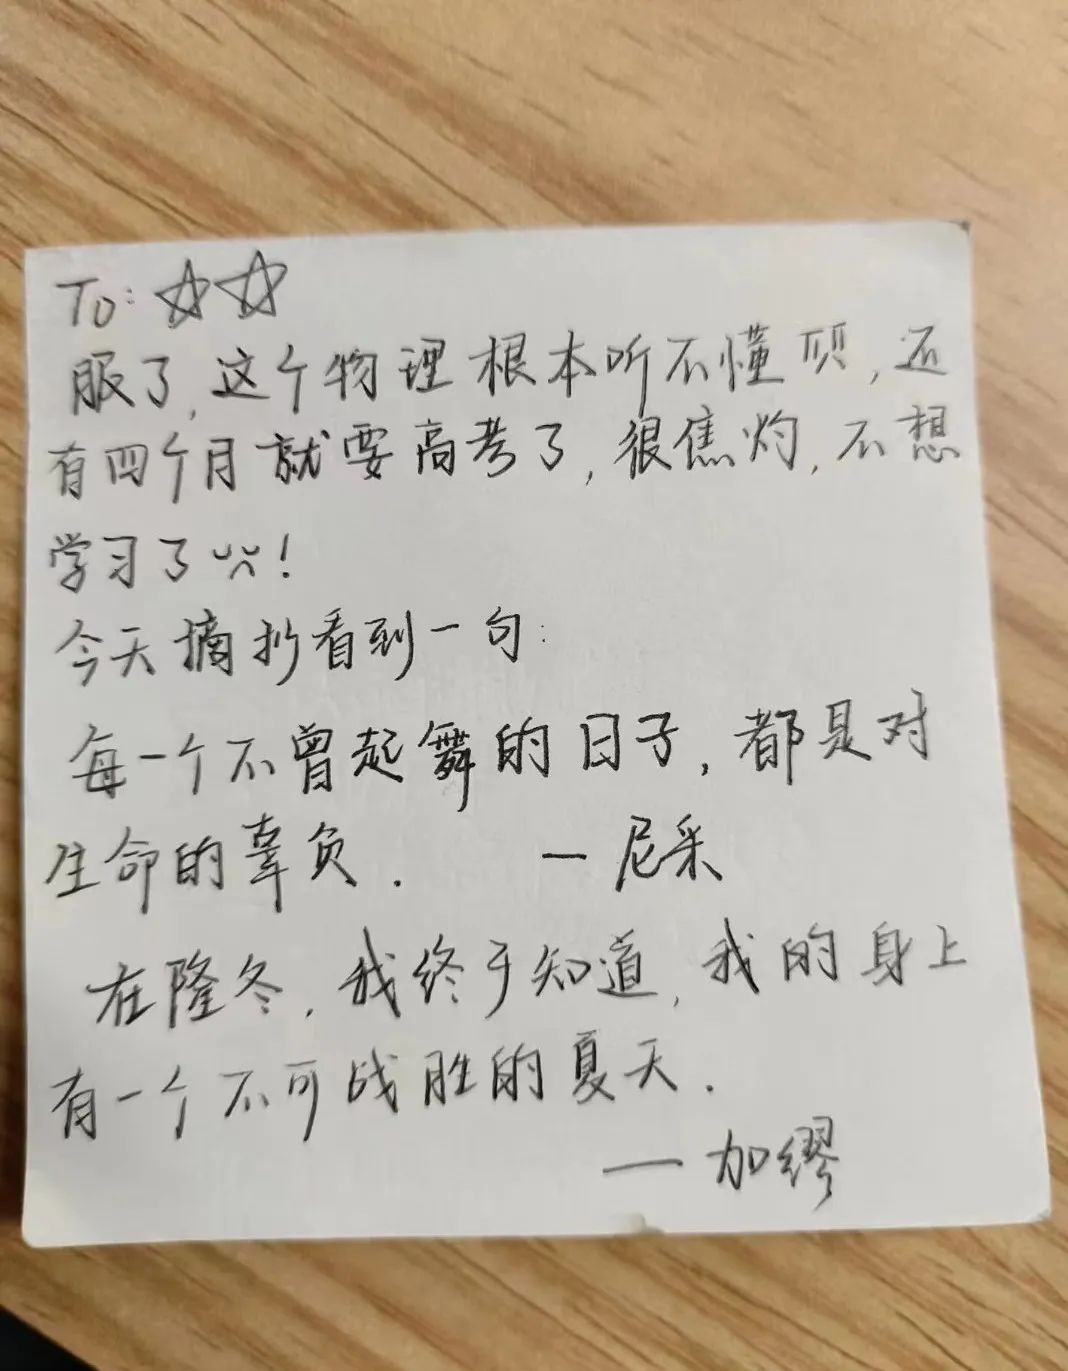 To: ☆☆
服了,这个物理根本听不懂呗,还
有四个月就要高考了,很焦灼,不想
学习了!
今天摘抄看到一句:
每一个不曾起舞的日子,都是对
生命的辜负. — 尼采
在隆冬,我终于知道,我的身上
有一个不可战胜的夏天.
— 加缪